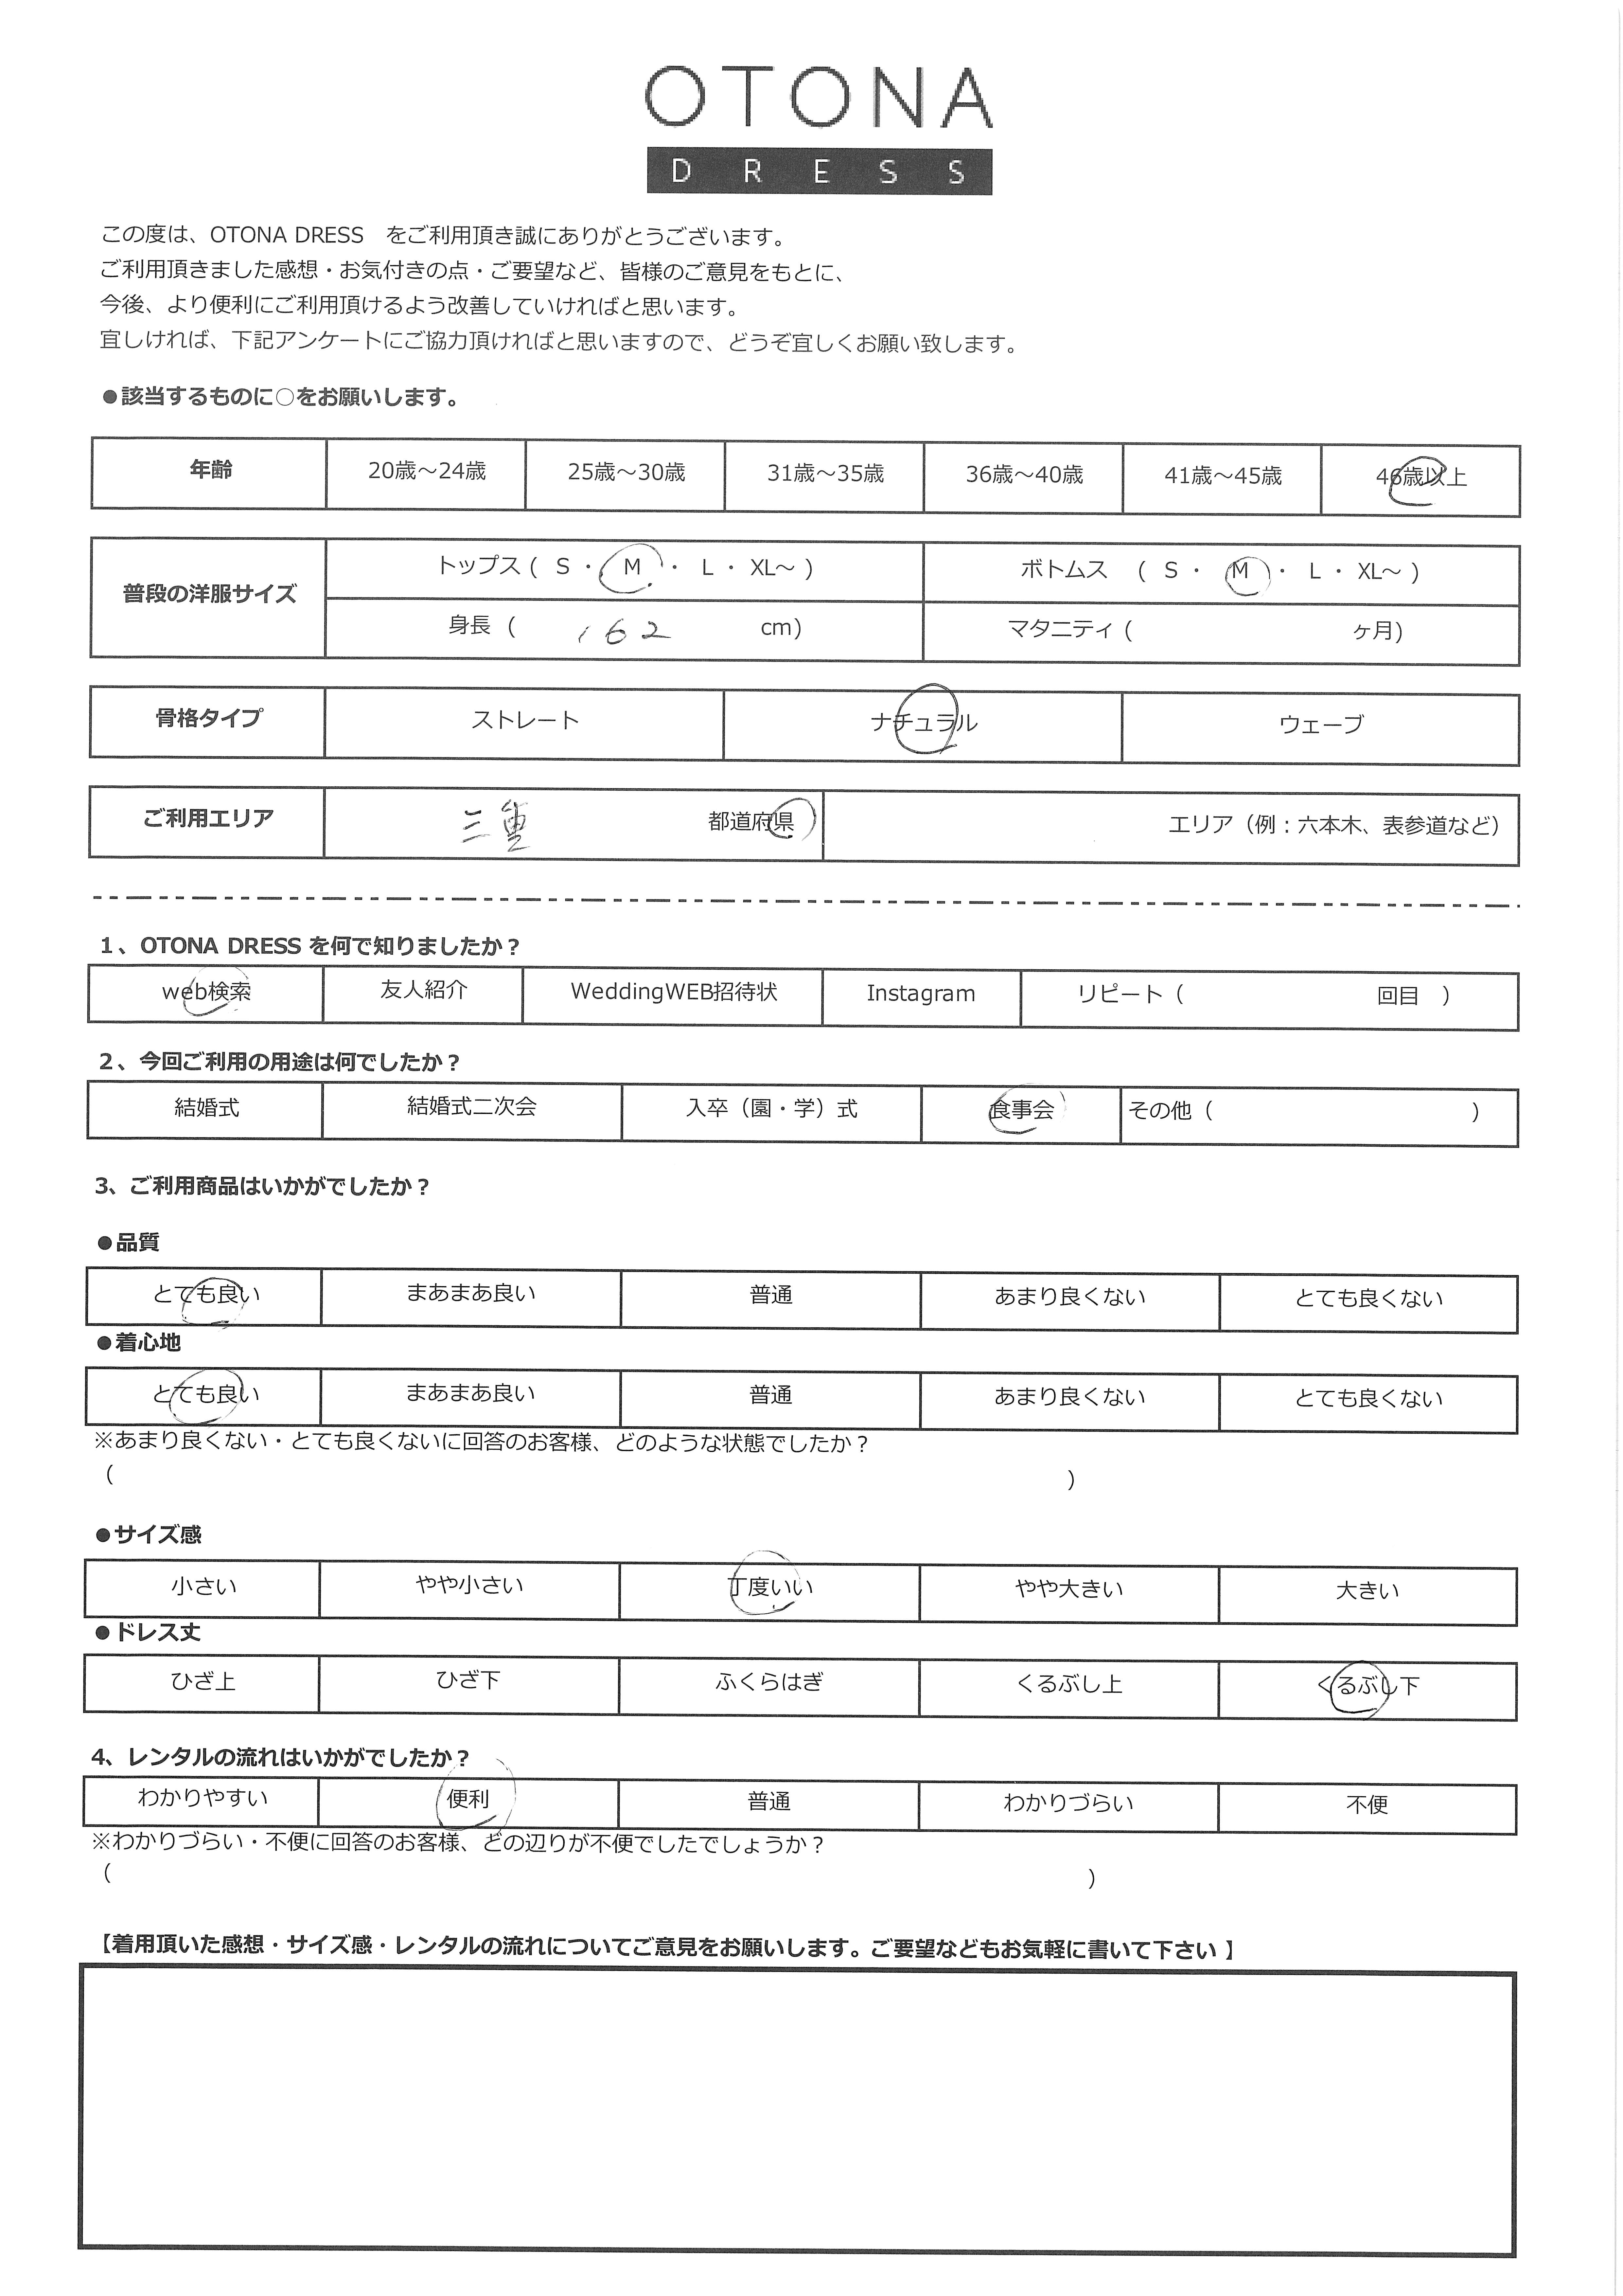 OTONA
DRESS
この度は、OTONA DRESS　をご利用頂き誠にありがとうございます。
ご利用頂きました感想・お気付きの点・ご要望など、皆様のご意見をもとに、
今後、より便利にご利用頂けるよう改善していければと思います。
宜しければ、下記アンケートにご協力頂ければと思いますので、どうぞ宜しくお願い致します。
●該当するものに○をお願いします。
年齢 20歳～24歳 25歳～30歳 31歳～35歳 36歳～40歳 41歳～45歳 46歳以上
普段の洋服サイズ トップス ( S ・ M ・ L ・ XL～ ) ボトムス ( S ・ M ・ L ・ XL～ )
身長 ( 162 cm) マタニティ ( ヶ月)
骨格タイプ ストレート ナチュラル ウェーブ
ご利用エリア 三重 都道府県 エリア（例：六本木、表参道など）
1、OTONA DRESS を何で知りましたか？
web検索 友人紹介 WeddingWEB招待状 Instagram リピート（ 回目 ）
2、今回ご利用の用途は何でしたか？
結婚式 結婚式二次会 入卒（園・学）式 食事会 その他（ ）
3、ご利用商品はいかがでしたか？
●品質
とても良い まあまあ良い 普通 あまり良くない とても良くない
●着心地
とても良い まあまあ良い 普通 あまり良くない とても良くない
※あまり良くない・とても良くないに回答のお客様、どのような状態でしたか？
（ ）
●サイズ感
小さい やや小さい 丁度いい やや大きい 大きい
●ドレス丈
ひざ上 ひざ下 ふくらはぎ くるぶし上 くるぶし下
4、レンタルの流れはいかがでしたか？
わかりやすい 便利 普通 わかりづらい 不便
※わかりづらい・不便に回答のお客様、どの辺りが不便でしたでしょうか？
（ ）
【着用頂いた感想・サイズ感・レンタルの流れについてご意見をお願いします。ご要望などもお気軽に書いて下さい 】